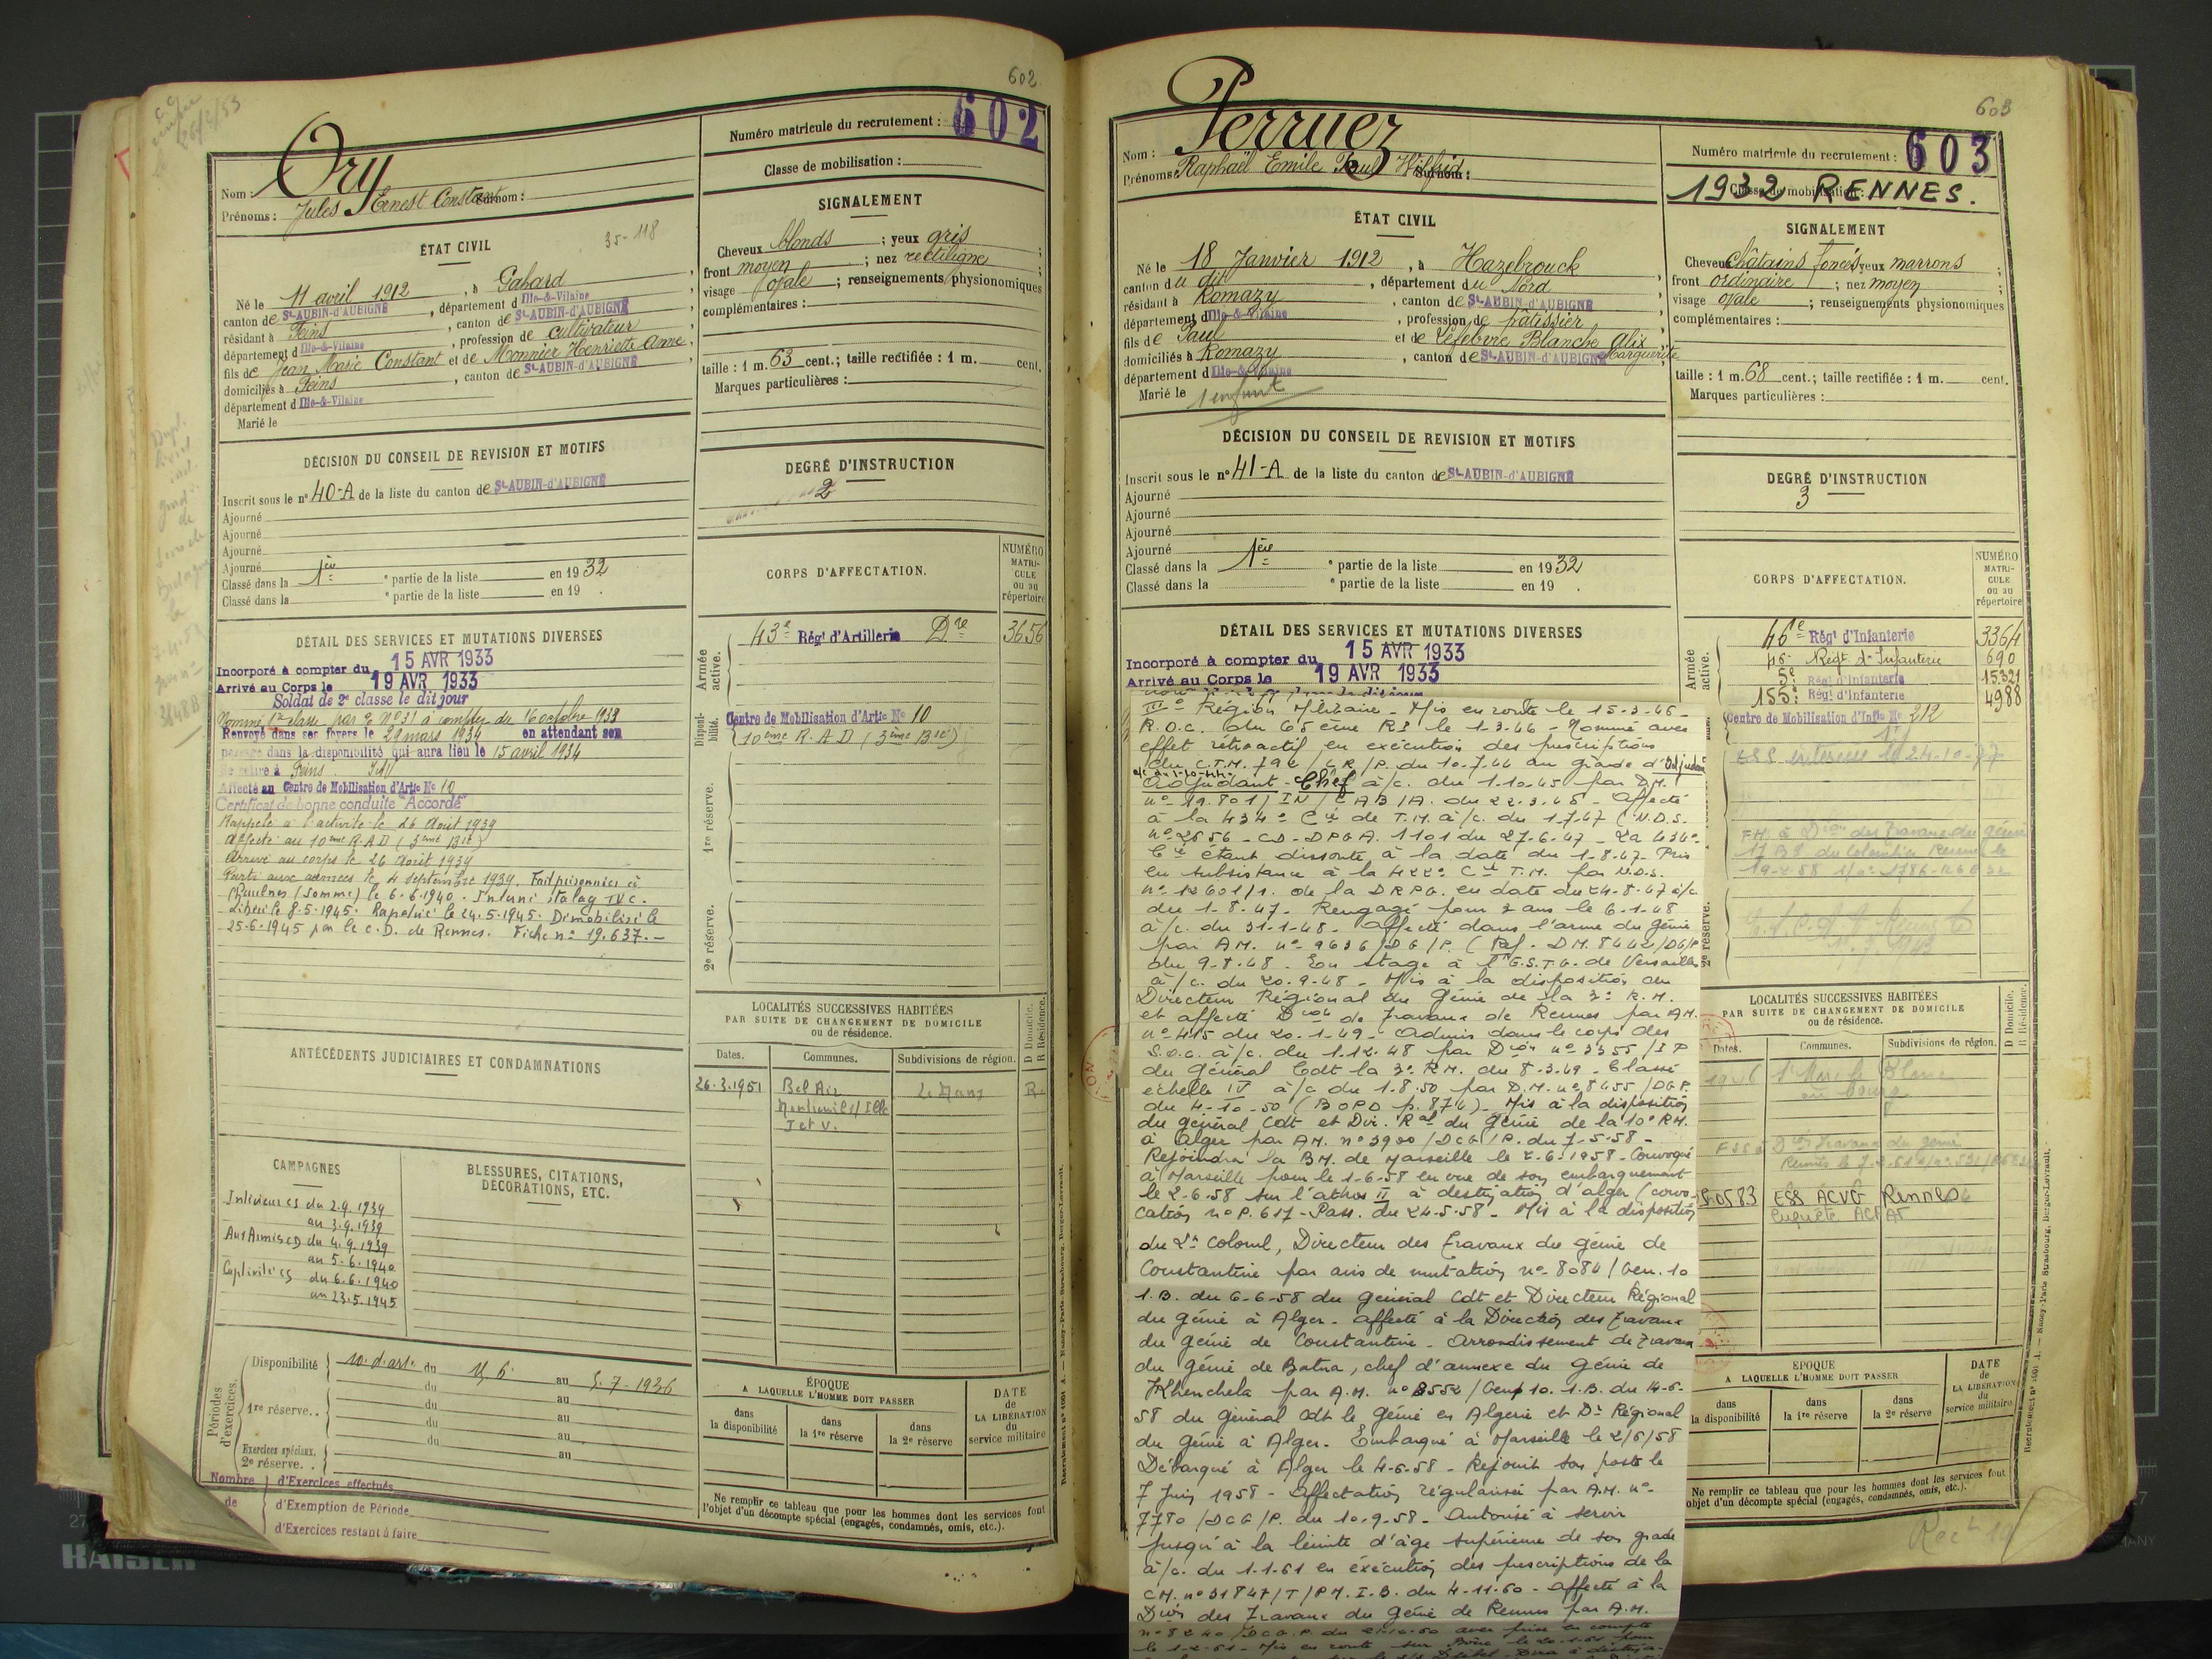 602
Ory
Nom :
Prénoms : Jules Ernest Constant Surnom :
Numéro matricule du recrutement : 602
Classe de mobilisation :
ÉTAT CIVIL
35-118
Né le 11 avril 1912, à Gahard
canton de St-AUBIN-d'AUBIGNÉ, département d Ille-&-Vilaine
résidant à Feins, canton de St-AUBIN-d'AUBIGNÉ
département d Ille-&-Vilaine, profession de cultivateur
fils de Jean Marie Constant et de Monnier Henriette Anne
domiciliés à Feins, canton de St-AUBIN-d'AUBIGNÉ
département d Ille-&-Vilaine
Marié le
SIGNALEMENT
Cheveux blonds ; yeux gris ;
front moyen ; nez rectiligne ;
visage ovale ; renseignements physionomiques
complémentaires :
taille : 1 m. 63 cent.; taille rectifiée : 1 m. cent.
Marques particulières :
DÉCISION DU CONSEIL DE REVISION ET MOTIFS
Inscrit sous le n° 40-A de la liste du canton de St-AUBIN-d'AUBIGNÉ
Ajourné
Ajourné
Ajourné
Ajourné
Classé dans la 1ère partie de la liste en 1932
Classé dans la e partie de la liste en 19 .
DEGRÉ D'INSTRUCTION
2
DÉTAIL DES SERVICES ET MUTATIONS DIVERSES
Incorporé à compter du 15 AVR 1933
Arrivé au Corps le 19 AVR 1933
Soldat de 2e classe le dit jour
Nommé 1re classe par O N° 31 à compter du 16 octobre 1933
Renvoyé dans ses foyers le 29 mars 1934 en attendant son
passage dans la disponibilité qui aura lieu le 15 avril 1934
Se retire à Feins
Affecté au Centre de Mobilisation d'Artie N° 10
Certificat de bonne conduite "Accordé"
Rappelé à l'activité le 26 Août 1939
Affecté au 10ème R.A.D (3ème Bie)
Arrivé au corps le 26 Août 1939
Parti aux armées le 4 septembre 1939. Fait prisonnier à
Chaulnes (Somme) le 6.6.1940. Interné stalag IV C.
Libéré le 8.5.1945. Rapatrié le 24.5.1945. Démobilisé le
25.6.1945 par le C.D. de Rennes. Fiche n° 19.637.-
CORPS D'AFFECTATION.
NUMÉRO MATRI-CULE ou au répertoire
Armée active.
43e Régt d'Artillerie Dre 3656
Disponi-bilité.
Centre de Mobilisation d'Artie N° 10
(10ème R.A.D (3ème Bie)
1re réserve.
2e réserve.
ANTÉCÉDENTS JUDICIAIRES ET CONDAMNATIONS
LOCALITÉS SUCCESSIVES HABITÉES
PAR SUITE DE CHANGEMENT DE DOMICILE
ou de résidence.
D Domicile.
R Résidence.
Dates.
Communes.
Subdivisions de région.
26.3.1951 Bel Air Le Mans R.
Montreuil s/ Ille
I et V.
CAMPAGNES
Intérieur CS du 2.9.1939
au 3.9.1939
Aux Armées CD du 4.9.1939
au 5.6.1940
Captivité CS du 6.6.1940
au 23.5.1945
BLESSURES, CITATIONS,
DÉCORATIONS, ETC.
Périodes d'exercices.
Disponibilité
au 5-7-1936
1re réserve..
Exercices spéciaux.
2e réserve. .
Nombre
de
d'Exercices effectués
d'Exemption de Période
d'Exercices restant à faire
ÉPOQUE
A LAQUELLE L'HOMME DOIT PASSER
dans la disponibilité
dans la 1re réserve
dans la 2e réserve
DATE
de
LA LIBÉRATION
du
service militaire
Ne remplir ce tableau que pour les hommes dont les services font
l'objet d'un décompte spécial (engagés, condamnés, omis, etc.).
KAISER
603
Perruez
Nom :
Prénoms : Raphaël Emile Paul Wilfrid Surnom :
Numéro matricule du recrutement : 603
Classe de mobilisation :
1932 RENNES.
ÉTAT CIVIL
Né le 18 Janvier 1912, à Hazebrouck
canton du dit, département du Nord
résidant à Romazy, canton de St-AUBIN-d'AUBIGNÉ
département d Ille-&-Vilaine, profession de pâtissier
fils de Paul et de Lefebvre Blanche Alix Marguerite
domiciliés à Romazy, canton de St-AUBIN-d'AUBIGNÉ
département d Ille-&-Vilaine
Marié le
1 enfant
SIGNALEMENT
Cheveux châtains foncés yeux marrons ;
front ordinaire ; nez moyen ;
visage ovale ; renseignements physionomiques
complémentaires :
taille : 1 m. 68 cent.; taille rectifiée : 1 m. cent.
Marques particulières :
DÉCISION DU CONSEIL DE REVISION ET MOTIFS
Inscrit sous le n° 41-A de la liste du canton de St-AUBIN-d'AUBIGNÉ
Ajourné
Ajourné
Ajourné
Ajourné
Classé dans la 1ère partie de la liste en 1932
Classé dans la e partie de la liste en 19 .
DEGRÉ D'INSTRUCTION
3
DÉTAIL DES SERVICES ET MUTATIONS DIVERSES
Incorporé à compter du 15 AVR 1933
Arrivé au Corps le 19 AVR 1933
IIIe Région Militaire - Mis en route le 15-3-46-
R.O.C. du 65ème RI le 1-3-46 - Nommé avec
effet rétroactif en exécution des prescriptions
du C.T.M. 792 /CR/P. du 10-7-46 au grade d'adjudant
Adjudant-Chef à/c. du 1.10.45 par D.M.
n° 19.801/IN/CAB/A. du 22.3.45 - affecté
à la 434e Cie de T.M. à/c. du 1.7.47 (N.D.S.
n° 2656 - CD - DPGA. 1101 du 27-6-47 - La 434e
Cie étant dissoute à la date du 1-8-47 - Pris
en subsistance à la 422e Cie T.M. par N.D.S.
n° 12601/1. de la DRPG. en date du 24-8-47 à/c
du 1-8-47 - Rengagé pour 2 ans le 6-1-48
à/c. du 31-1-48 - affecté dans l'arme du génie
par AM. n° 9636/DG/P. (Réf. DM. 8442/DG/P
du 9-8-48 - En stage à l'E.S.T.G. de Versailles
à/c. du 20-9-48 - Mis à la disposition du
Directeur Régional du Génie de la 3e R.M.
et affecté Dion de Travaux de Rennes par AM.
n° 415 du 20-1-49 - admis dans le corps des
S.O.C. à/c. du 1.12.48 par Dion n° 3355/IP
du général Cdt la 3e R.M. du 8-3-49 - Classé
échelle IV à/c du 1.8.50 par D.M. n° 8455/DGP.
du 4-10-50 (BOPD p. 874) - Mis à la disposition
du général Cdt et Dir. Ral du Génie de la 10e RM.
à Alger par AM. n° 3900/DCG/P. du 7-5-58 -
Rejoindra la BM. de Marseille le 2-6-1958 - Convoqué
à Marseille pour le 1-6-58 en vue de son embarquement
le 2-6-58 sur l'athos II à destination d'alger (convo-
cation n° P. 617 - Pass. du 24-5-58 - Mis à la disposition
du Lt Colonel, Directeur des travaux du génie de
Constantine par avis de mutation n° 8084/Gen. 10
1.B. du 6-6-58 du général Cdt et Directeur Régional
du génie à Alger - affecté à la Direction des travaux
du génie de Constantine - arrondissement de travaux
du génie de Batna, chef d'annexe du génie de
Khenchela par A.M. n° 8552/Gen 10. 1.B. du 14-6-
58 du général Cdt le Génie en Algérie et Dr Régional
du génie à Alger - Embarqué à Marseille le 2/6/58
Débarqué à Alger le 4-6-58 - Rejoint son poste le
7 Juin 1958 - affectation régularisée par A.M. n°
7780/DCG/P. du 10-9-58 - Autorisé à servir
jusqu'à la limite d'âge supérieure de son grade
à/c. du 1-1-61 en éxécution des prescriptions de la
CM. n° 31847/T/PM. I.B. du 4-11-60 - affecté à la
Dion des Travaux du Génie de Rennes par A.M.
n° 8240/DCG.P. du 21-12-60 avec prise en compte
le 1-2-61 - Mis en route sur Bône le 20-1-61 pour
CORPS D'AFFECTATION.
NUMÉRO MATRI-CULE ou au répertoire
Armée active.
46e Régt d'Infanterie 3364
46 Régt d'Infanterie 690
5e Régt d'Infanterie 15321
155e Régt d'Infanterie 4988
Centre de Mobilisation d'Infie N° 212
2e réserve.
LOCALITÉS SUCCESSIVES HABITÉES
PAR SUITE DE CHANGEMENT DE DOMICILE
ou de résidence.
D Domicile.
R Résidence.
Dates.
Communes.
Subdivisions de région.
ESS ACVG Rennes
Enquête
ÉPOQUE
A LAQUELLE L'HOMME DOIT PASSER
dans la disponibilité
dans la 1re réserve
dans la 2e réserve
DATE
de
LA LIBÉRATION
du
service militaire
Ne remplir ce tableau que pour les hommes dont les services font
objet d'un décompte spécial (engagés, condamnés, omis, etc.).